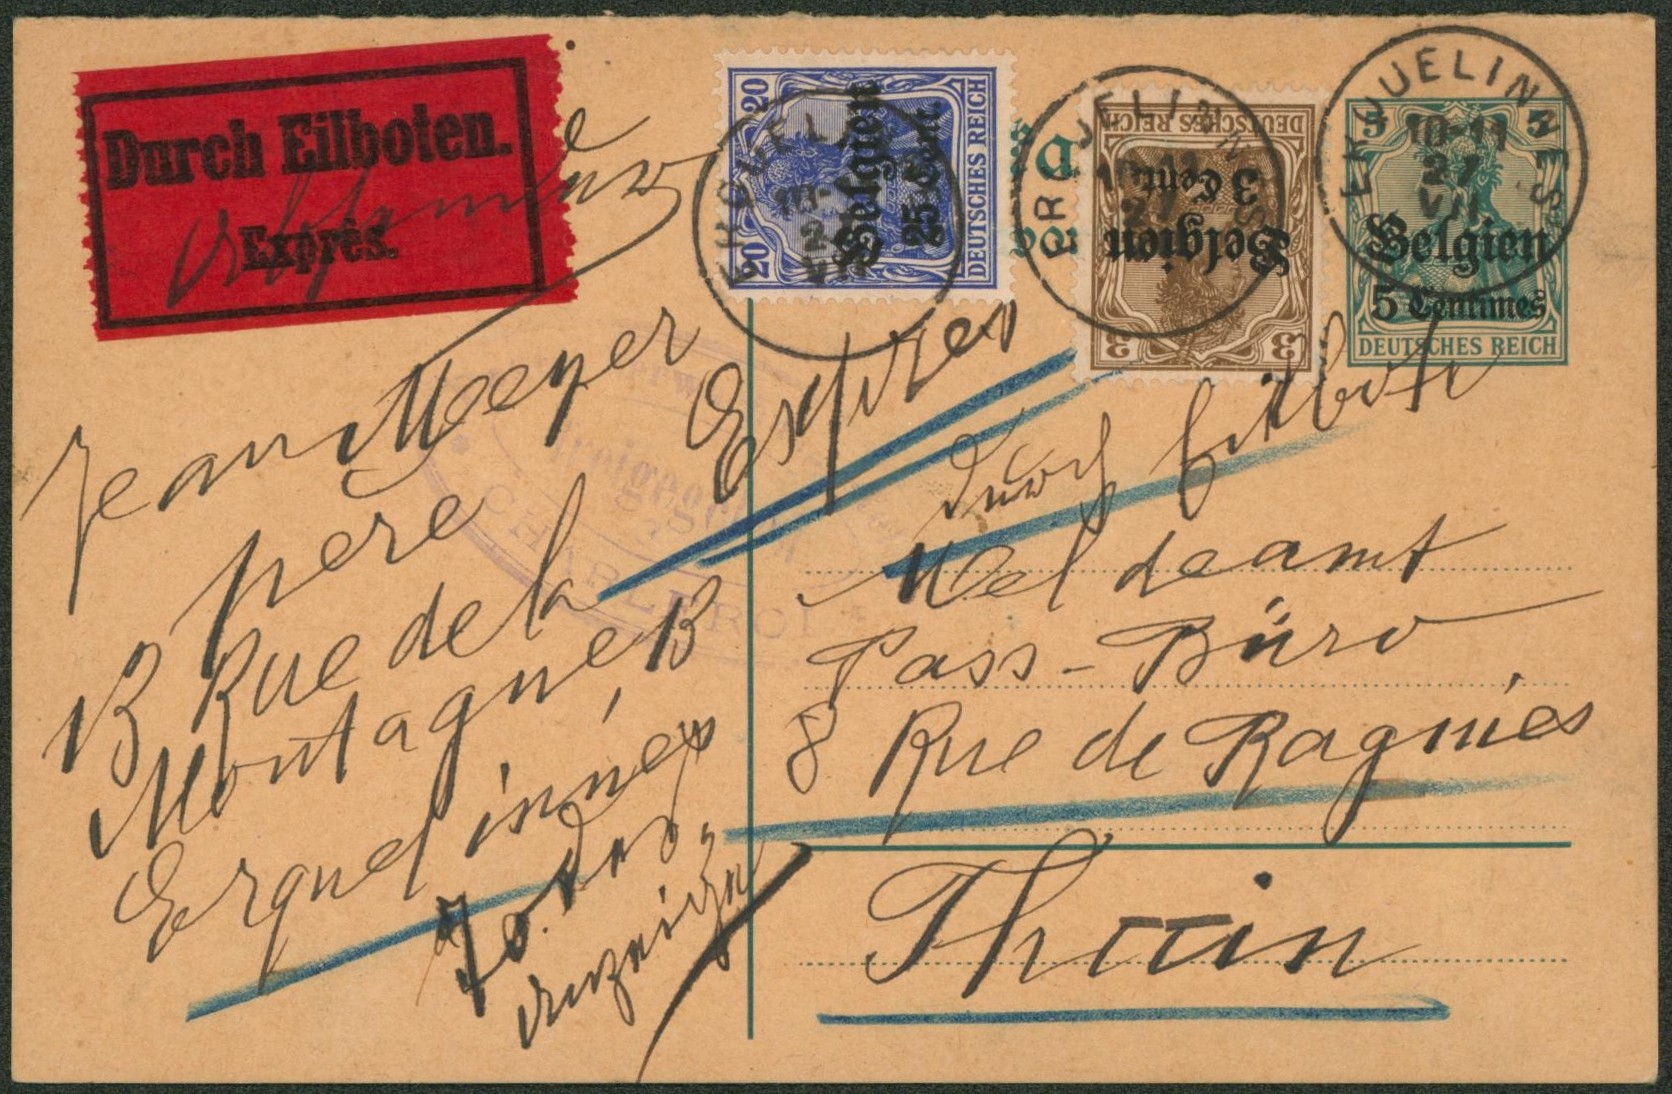 Durch Eilboten.
Exprès.
20 20
Belgien
25 Cent.
DEUTSCHES REICH
ERQUELINNES
27
VII
3 3
Belgien
3 Cent.
DEUTSCHES REICH
ERQUELINNES
27
5 5
Belgien
5 Centimes
DEUTSCHES REICH
ERQUELINNES
10-11
27
VII.
CHARLEROI
Jean Meeyer
pere
13 Rue de la
Montagne 13
Erquelinnes
Todes
anzeige
Expres
durch Eilbote
Meldeamt
Pass-Büro
8 Rue de Ragnies
Thuin